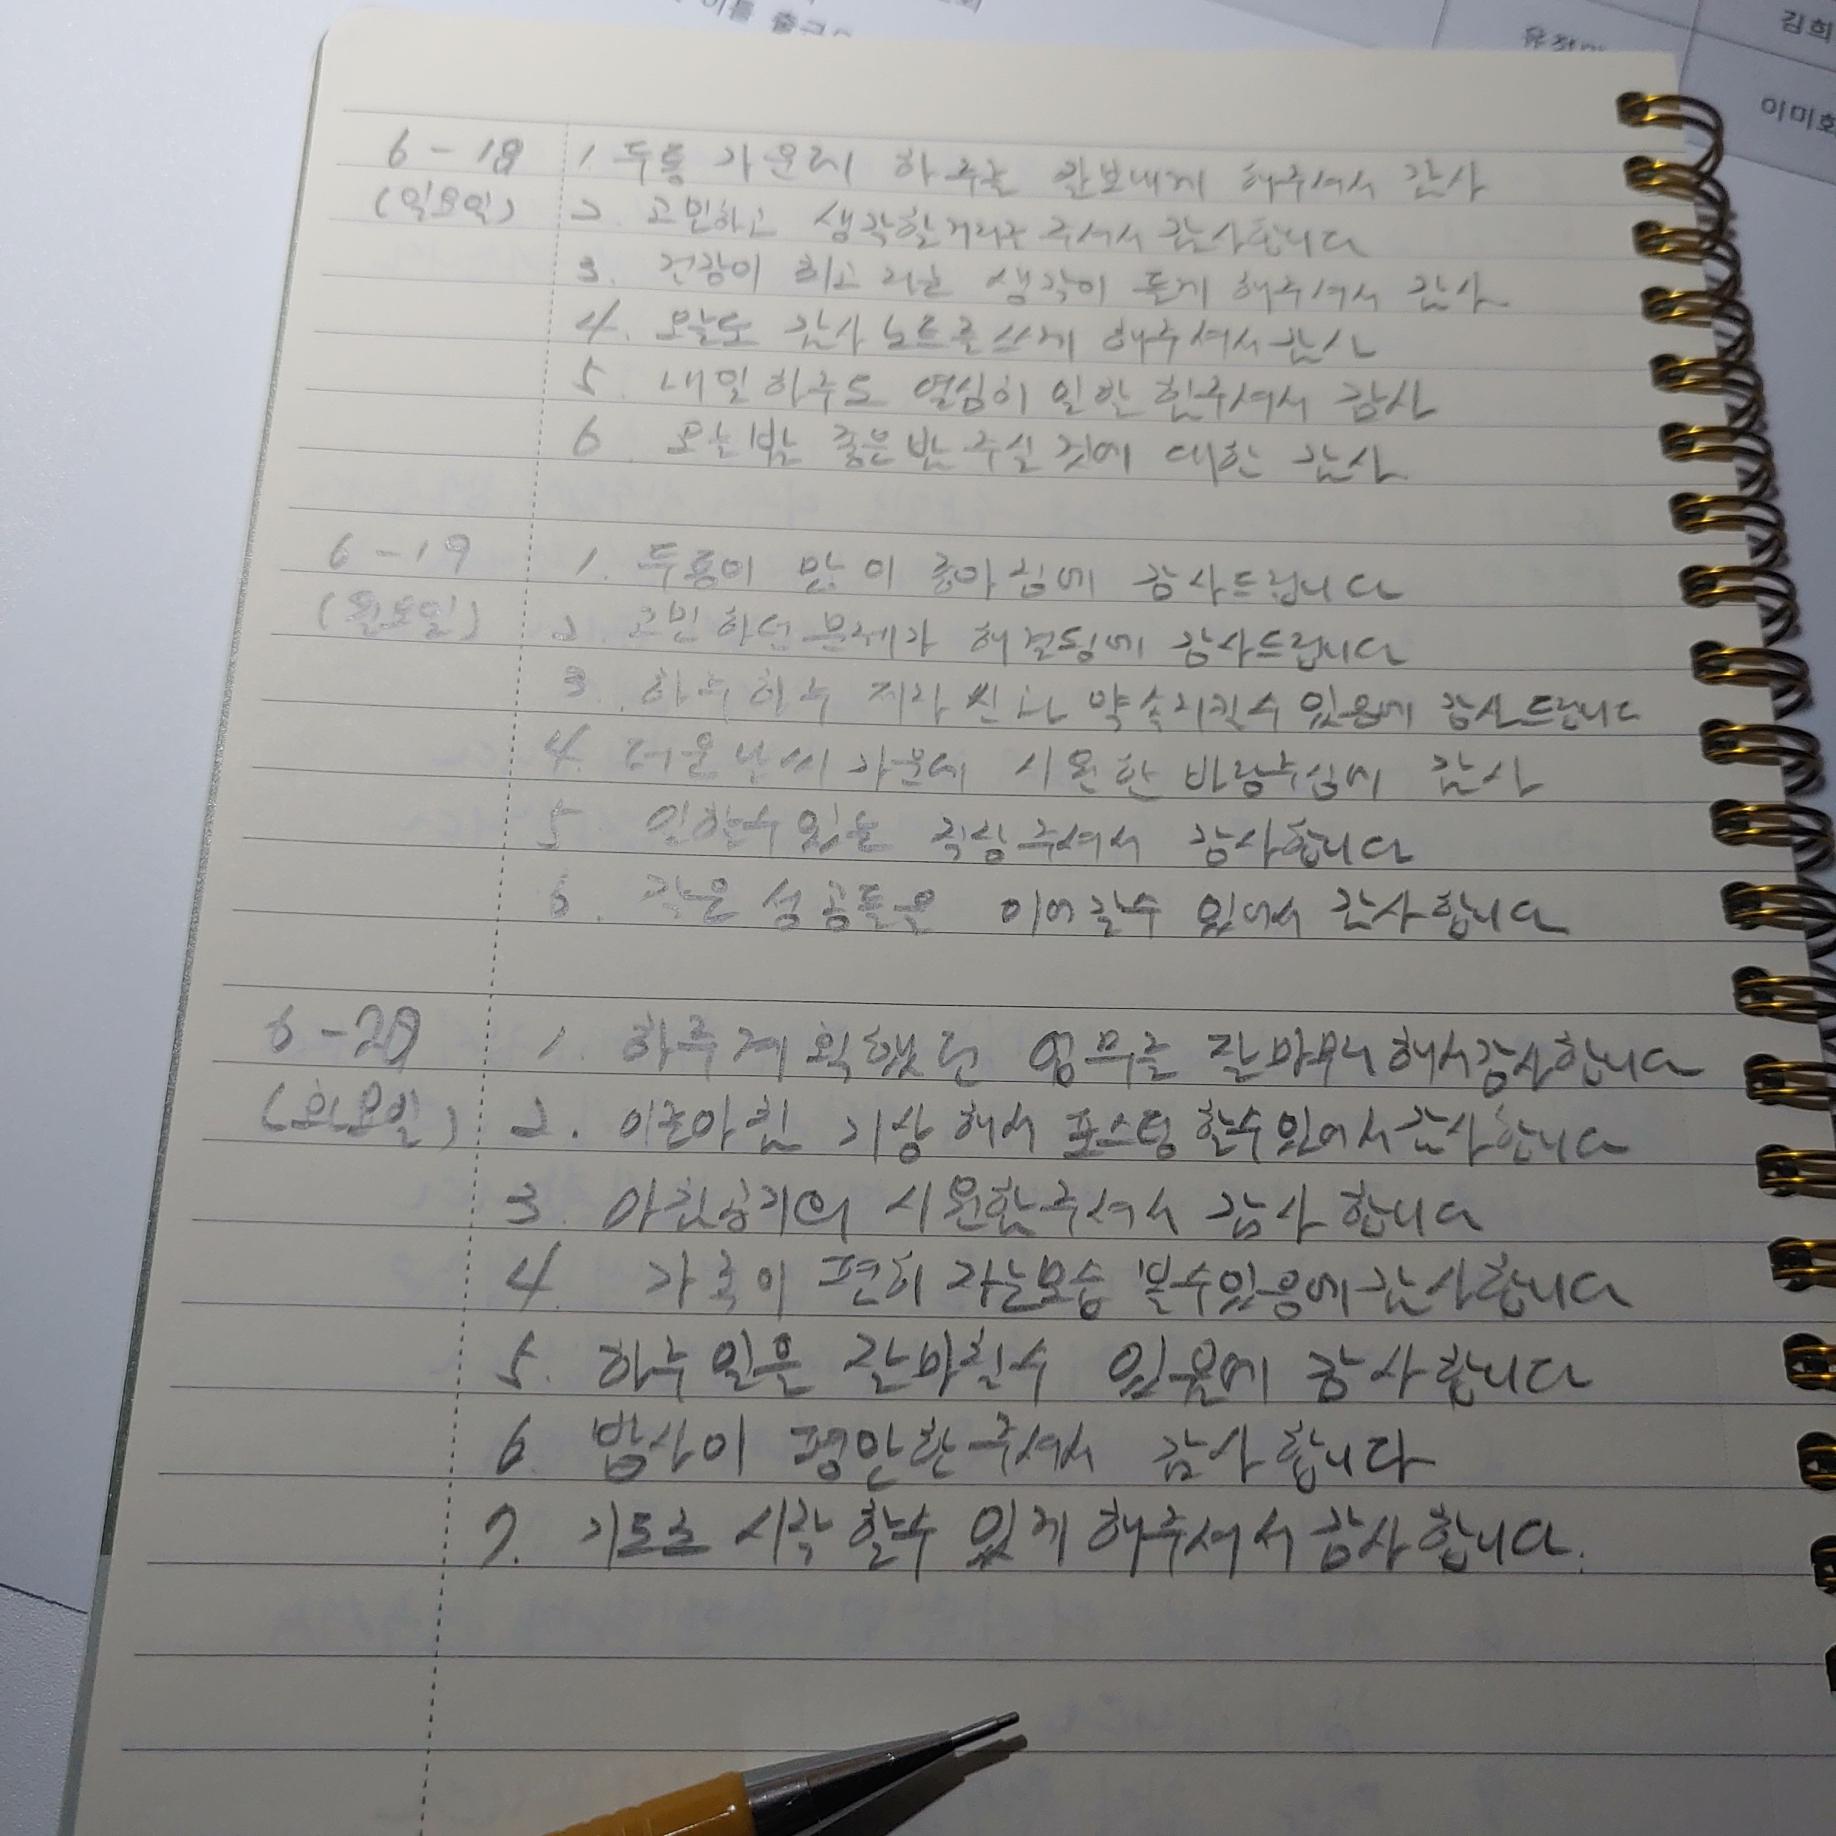 김희
이미호
6-18 1. 두통 가운데 하루를 잘보내게 해주셔서 감사
(일요일) 2. 고민하고 생각할거리를 주셔서 감사합니다
3. 건강이 최고 라는 생각이 들게 해주셔서 감사
4. 오늘도 감사노트를 쓰게 해주셔서 감사
5. 내일 하루도 열심히 일할 힘주셔서 감사
6. 오늘밤 좋은밤 주실 것에 대한 감사
6-19 1. 두통이 많이 좋아짐에 감사드립니다
(월요일) 2. 고민하던 문제가 해결됨에 감사드립니다
3. 하루하루 제자신과 약속지킬수 있음에 감사드립니다
4. 더운날씨 가운데 시원한 바람주심에 감사
5. 일할수있는 직장주셔서 감사합니다
6. 작은 성공들을 이어갈수 있어서 감사합니다
6-20 1. 하루계획했던 업무를 잘마무리해서감사합니다
(화요일) 2. 이른아침 기상해서 포스팅 할수있어서감사합니다
3. 아침공기의 시원함주셔서 감사합니다
4. 가족이 편히 자는모습 볼수있음에감사합니다
5. 하루일을 잘마칠수 있음에 감사합니다
6. 밤사이 평안함주셔서 감사합니다
7. 기도로 시작할수 있게해주셔서감사합니다.